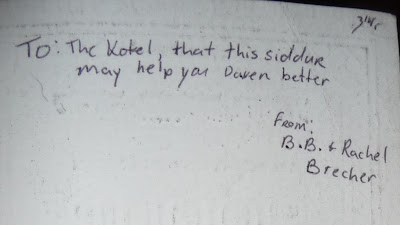 To: The Kotel, that this siddur
may help you Daven better
From:
B.B. + Rachel
Brecher